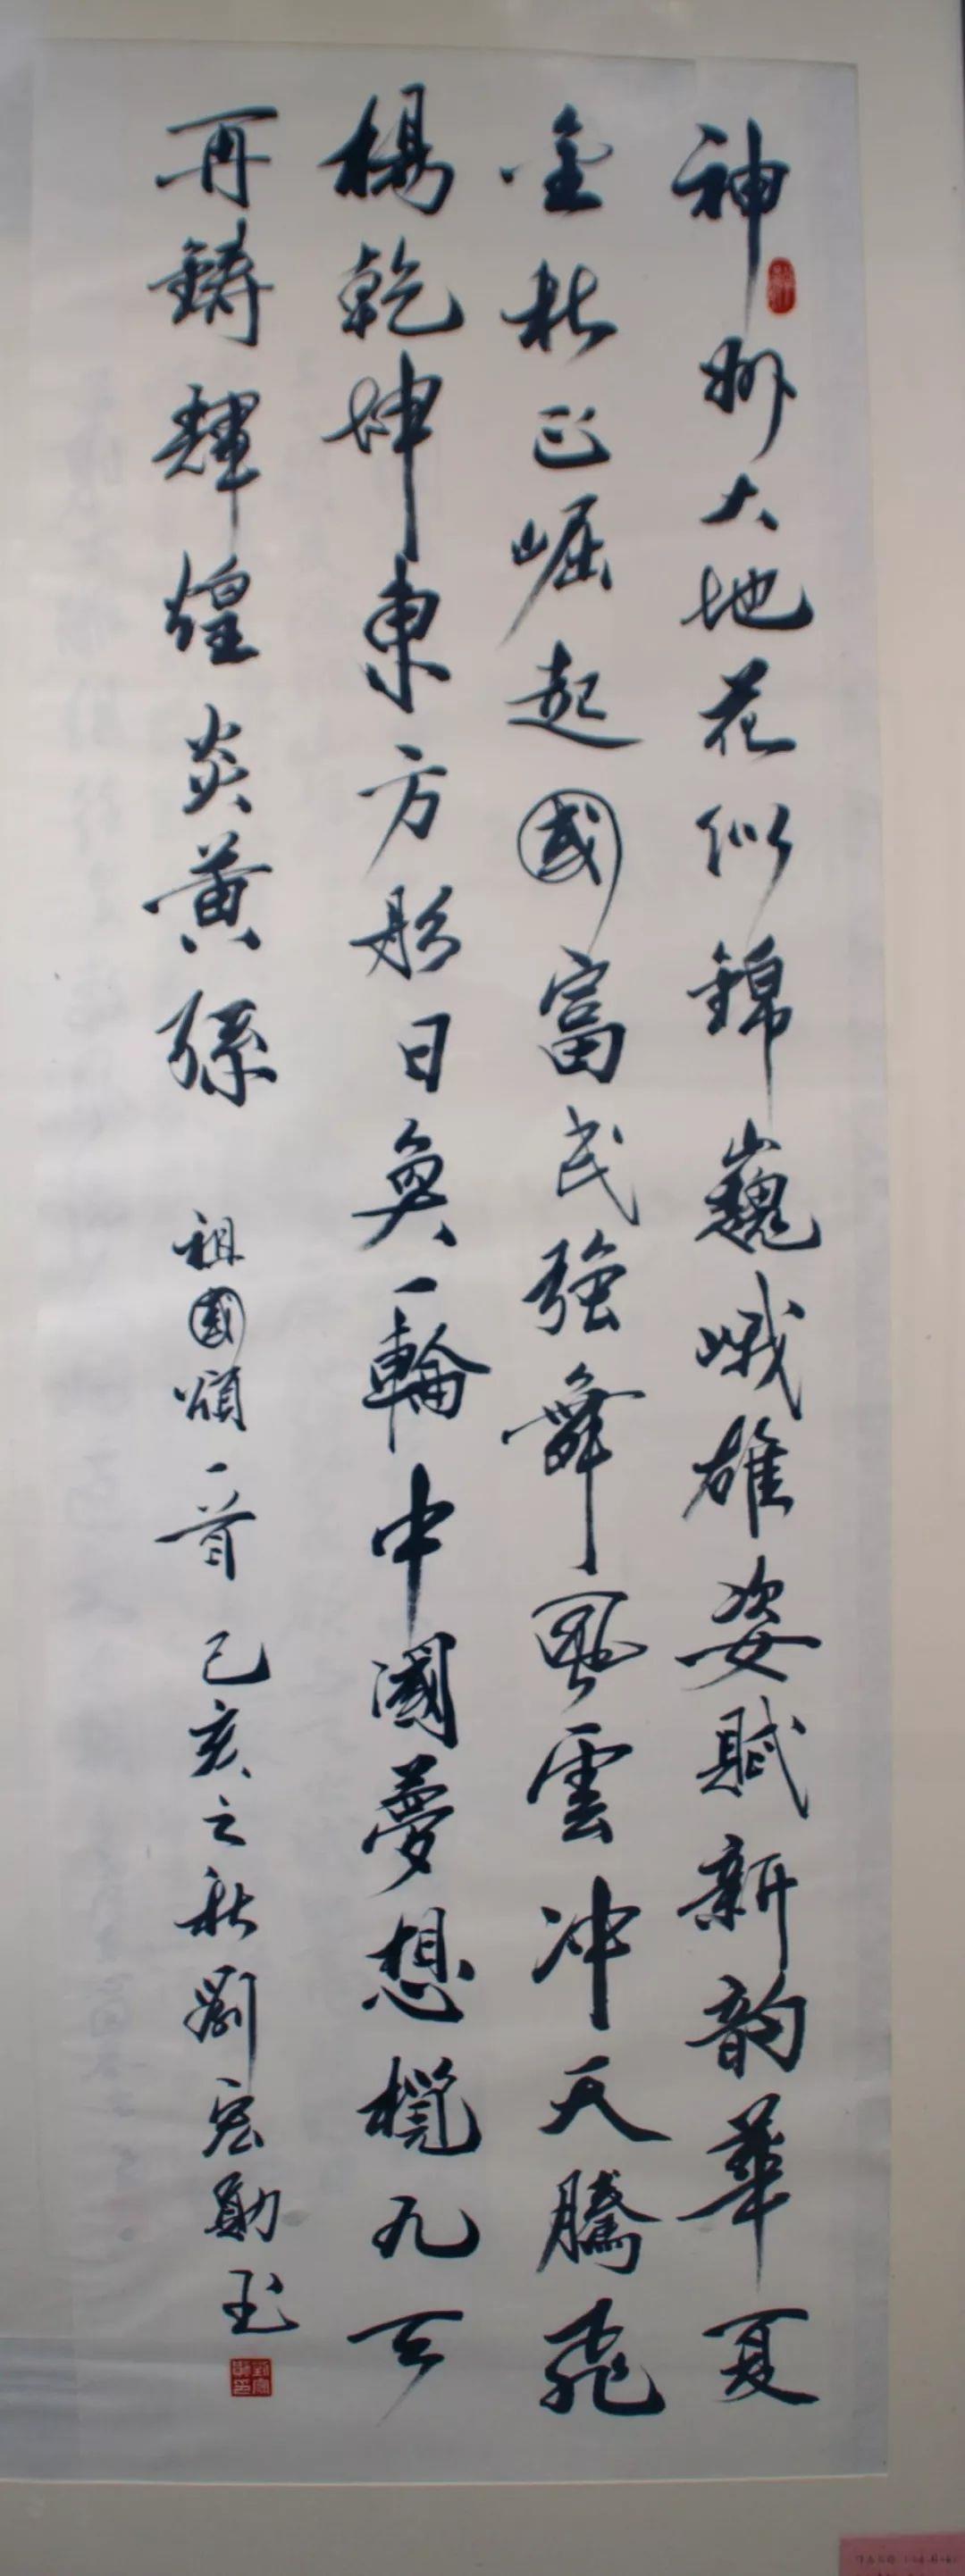 神州大地花似錦巍峨雄姿賦新韵華夏
金秋正崛起國富民強舞風雲冲天騰飛
楊乾坤東方彤日奐一輪中國夢想櫈九天
再鑄輝煌炎黃孫
祖國頌一首己亥之秋劉宏勛